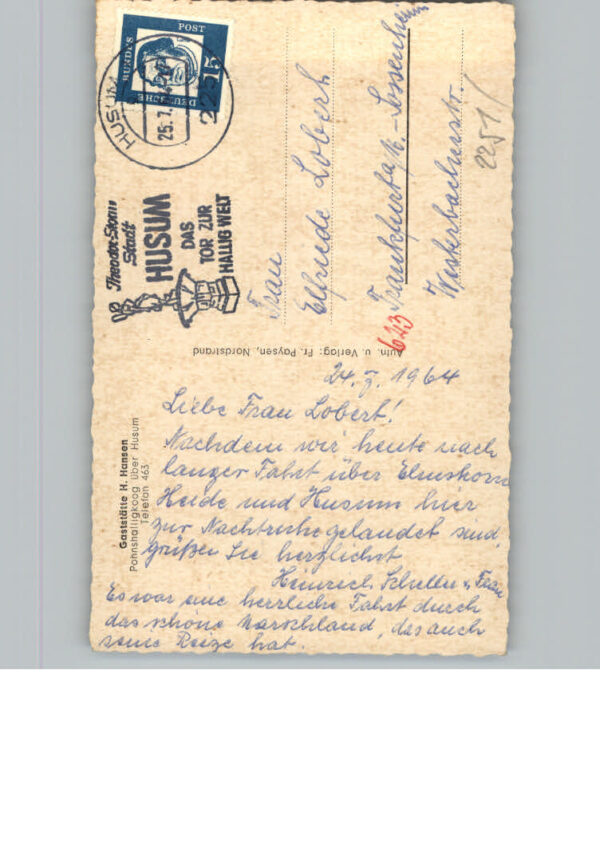 Gaststätte H. Hansen
Pohnshalligkoog über Husum
Telefon 463
24.7.1964
Liebe Frau Lobert!
Nachdem wir heute nach
langer Fahrt über Elmshorn
Heide und Husum hier
zur Nachtruhe gelandet sind,
grüßen Sie herzlichst
Heinrich u. Frau
Es war eine herrliche Fahrt durch
das schöne Marschland, das auch
seine Reize hat.
Aufn. u. Verlag: Fr. Paysen, Nordstrand
Theodor-Storm
Stadt
HUSUM
DAS
TOR ZUR
HALLIG WELT
HUSUM
25.7.
DEUTSCHE
BUNDES
POST
15
Frau
Elfriede Lobert
623 Frankfurt a/M.-Sossenheim
Westerbachstr.
2251/